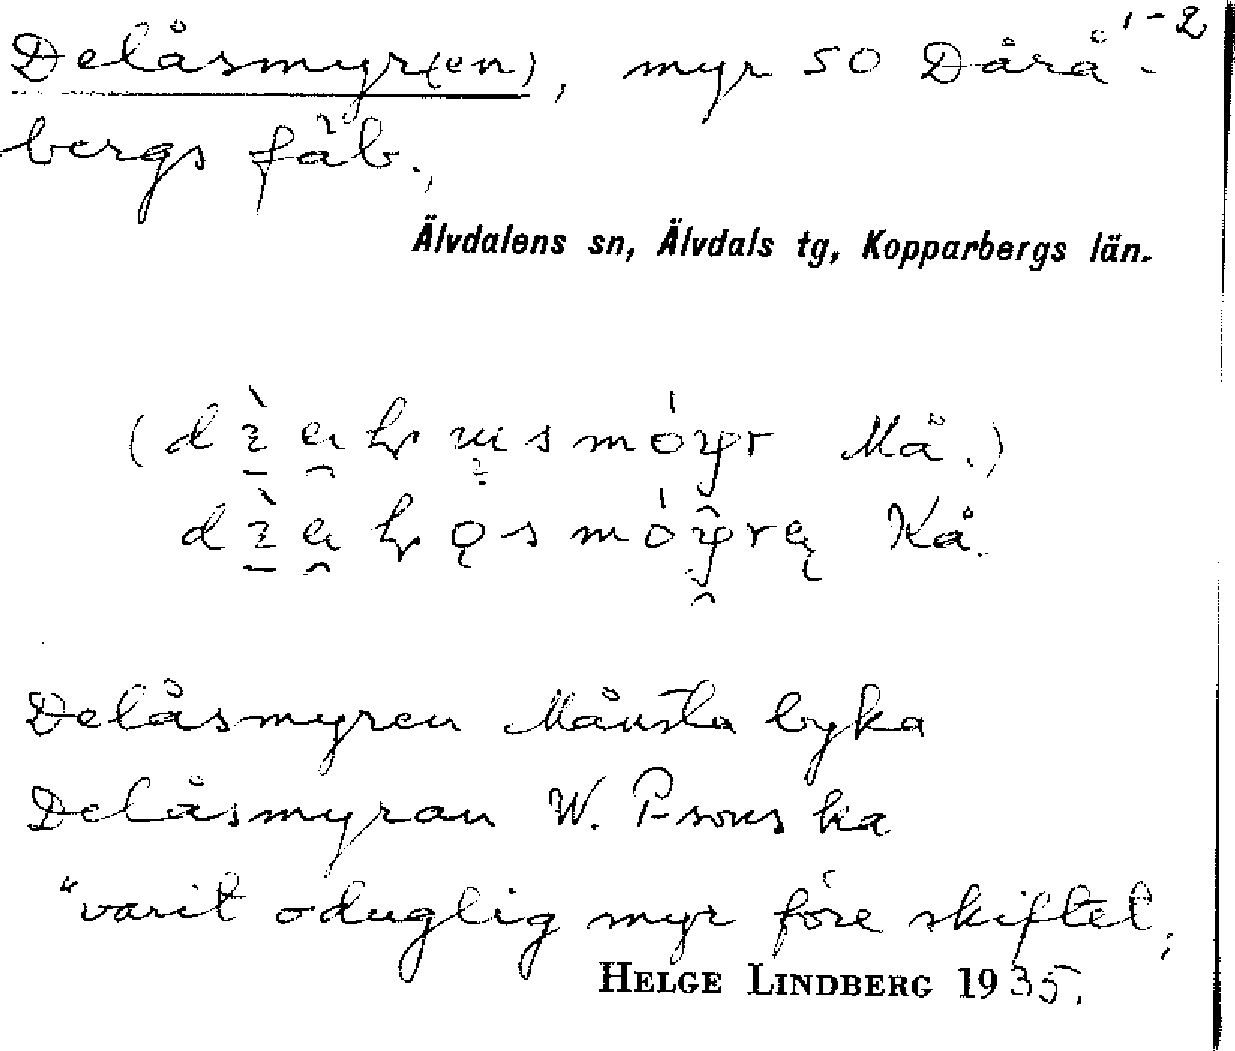 Delåsmyr(en), myr SO Dårå- 1-2
bergs fäb.,
Älvdalens sn, Älvdals tg, Kopparbergs län.
Må.)
Kå.
Delåsmyren Månsta byka
Delåsmyran W. P-sons ka
"varit oduglig myr före skiftet,
HELGE LINDBERG 1935.